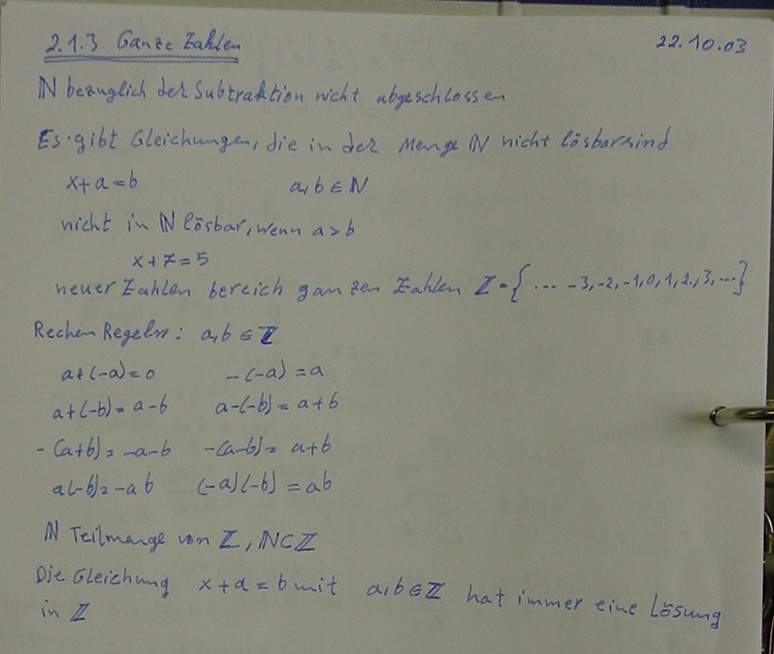 2.1.3 Ganze Zahlen 22.10.03
ℕ bezuglich der Subtraktion nicht abgeschlossen
Es gibt Gleichungen, die in der Menge ℕ nicht lösbar sind
x+a=b a,b ∈ ℕ
nicht in ℕ lösbar, wenn a>b
x+7=5
neuer Zahlen bereich ganzen Zahlen ℤ={ ... -3,-2,-1,0,1,2,3,...}
Rechen Regeln: a,b ∈ ℤ
a+(-a)=0 -(-a)=a
a+(-b)=a-b a-(-b)=a+b
-(a+b)=-a-b -(a-b)=a+b
a(-b)=-ab (-a)(-b)=ab
ℕ Teilmenge von ℤ, ℕ⊂ℤ
Die Gleichung x+a=b mit a,b∈ℤ hat immer eine Lösung
in ℤ